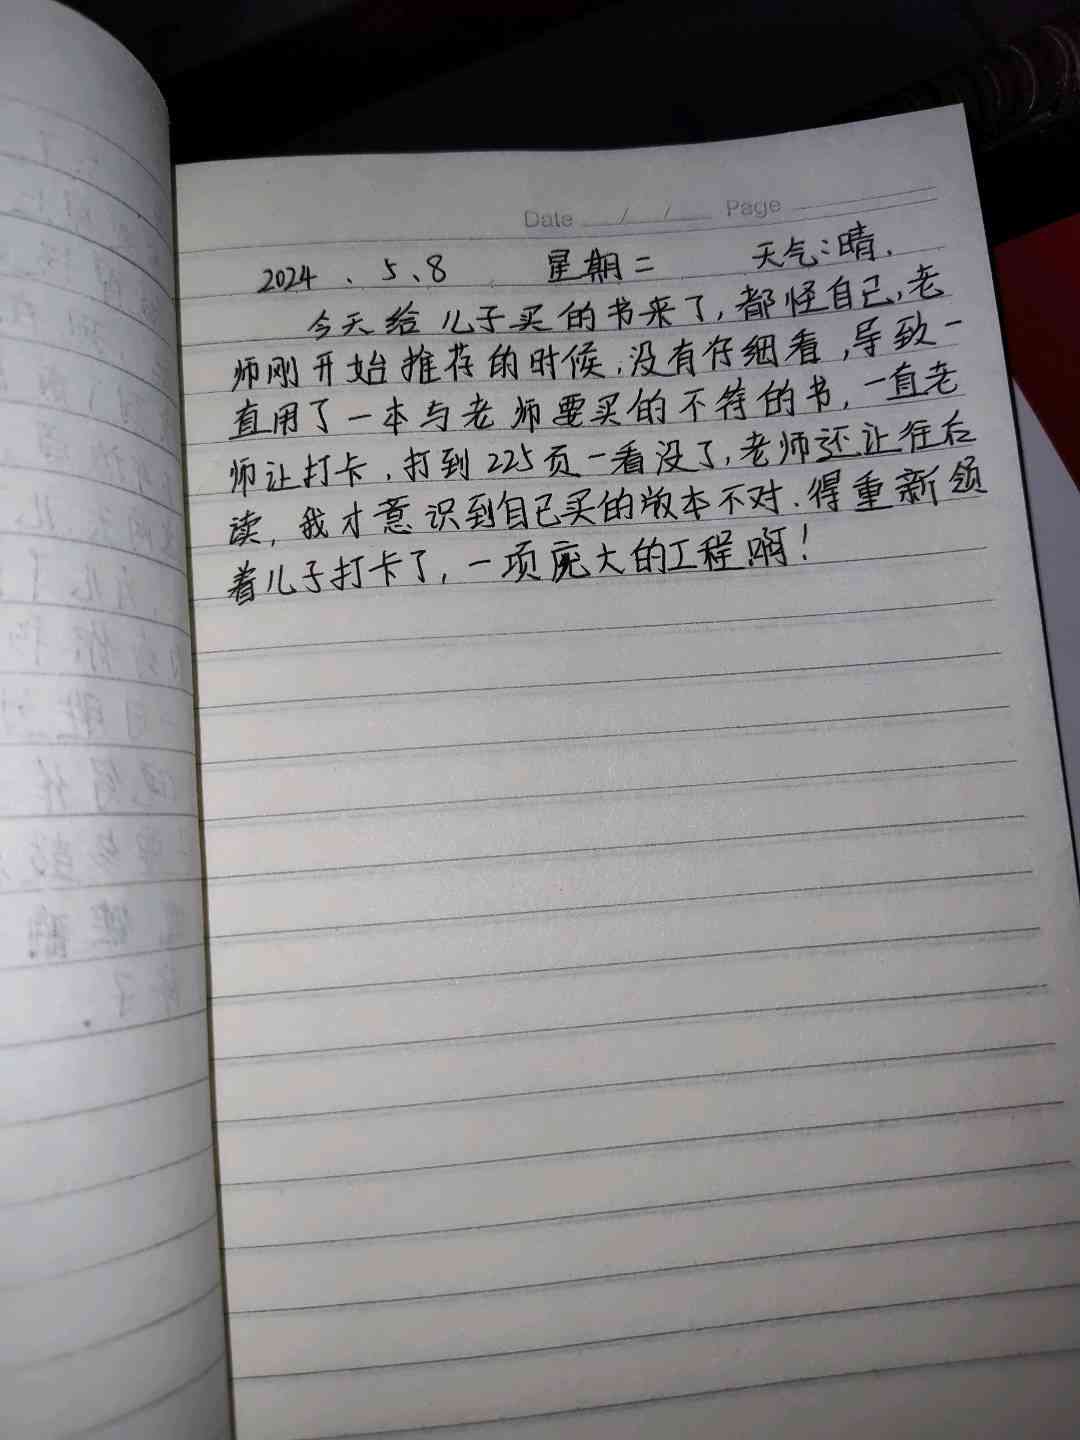 Date / / Page
2024 、5、8 星期二 天气:晴.
今天给儿子买的书来了,都怪自己,老
师刚开始推荐的时候,没有仔细看,导致一
直用了一本与老师要买的不符的书,一直老
师让打卡,打到225页一看没了,老师还让往后
读,我才意识到自己买的版本不对.得重新领
着儿子打卡了,一项庞大的工程啊!